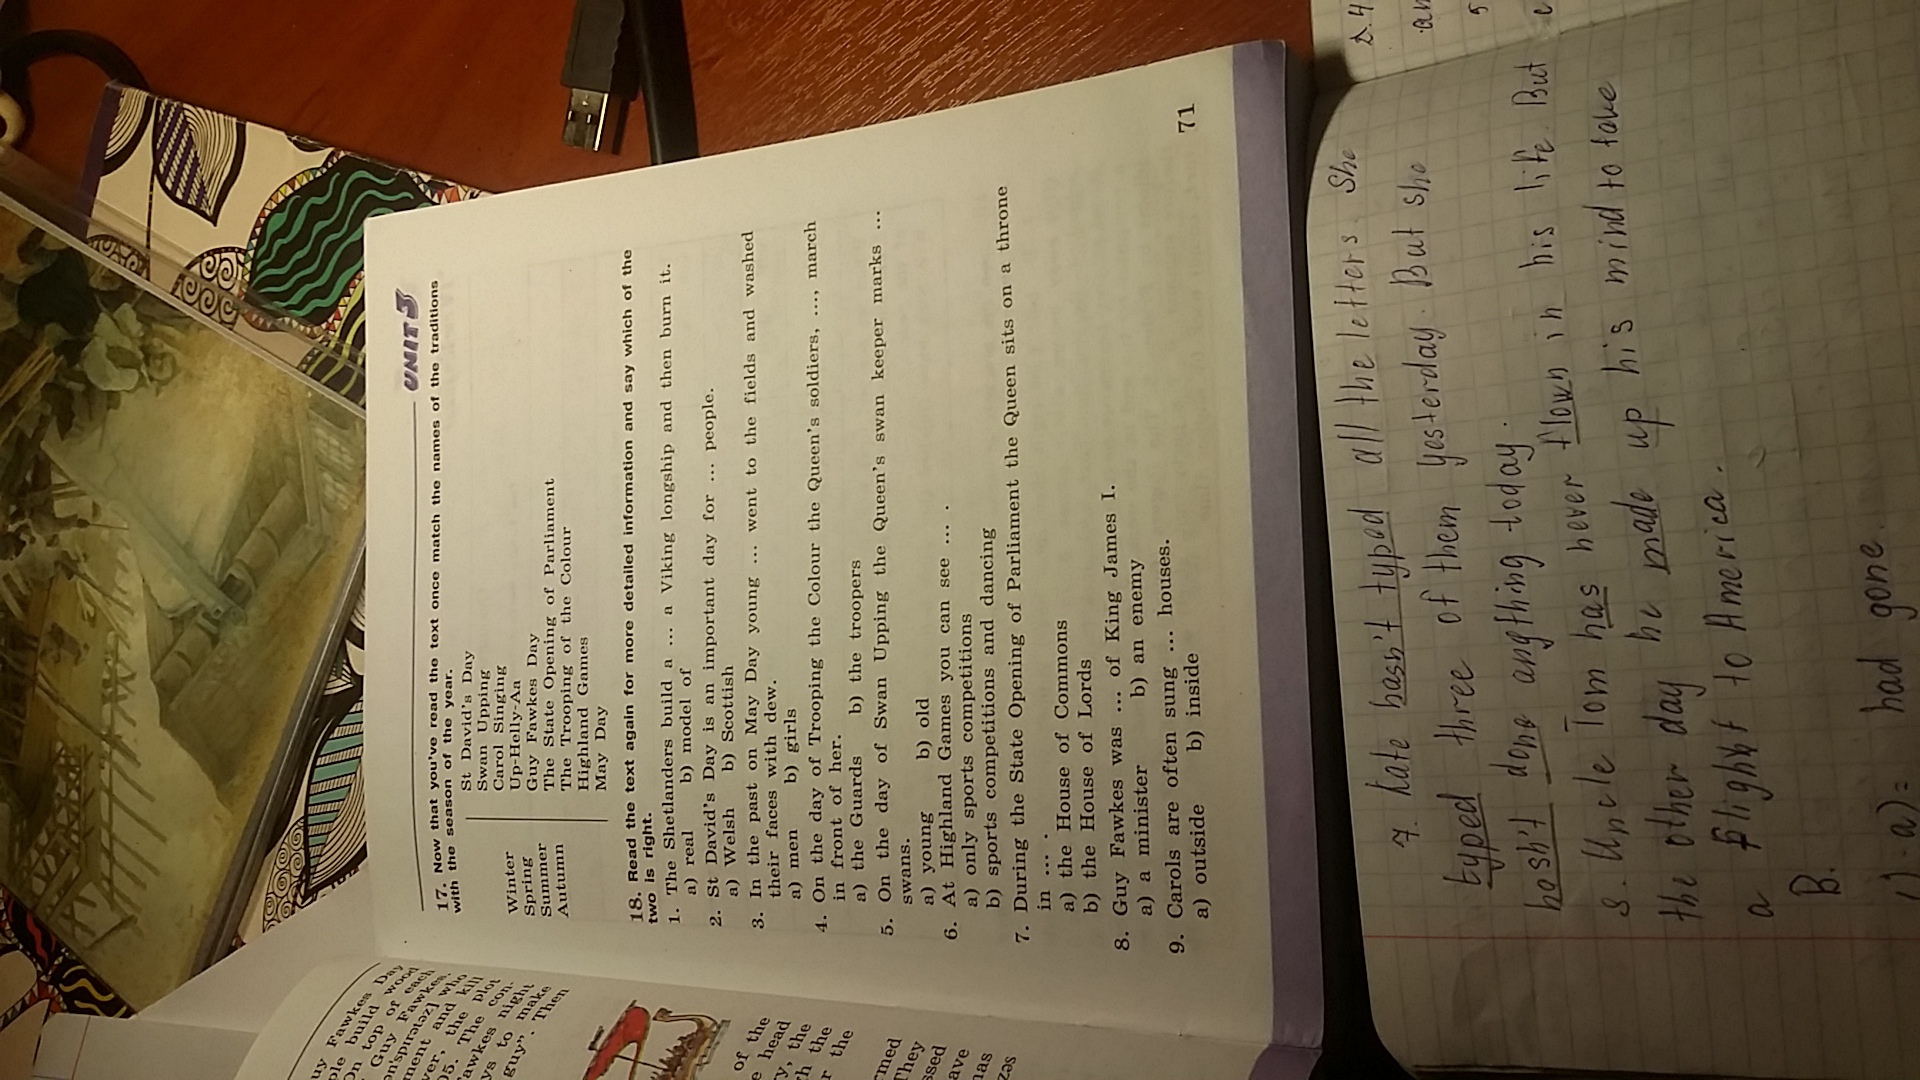 UNIT 3
17. Now that you've read the text once match the names of the traditions
with the season of the year.
Winter
Spring
Summer
Autumn
St David's Day
Swan Upping
Carol Singing
Up-Helly-Aa
Guy Fawkes Day
The State Opening of Parliament
The Trooping of the Colour
Highland Games
May Day
18. Read the text again for more detailed information and say which of the
two is right.
1. The Shetlanders build a ... a Viking longship and then burn it.
a) real b) model of
2. St David's Day is an important day for ... people.
a) Welsh b) Scottish
3. In the past on May Day young ... went to the fields and washed
their faces with dew.
a) men b) girls
4. On the day of Trooping the Colour the Queen's soldiers, ..., march
in front of her.
a) the Guards b) the troopers
5. On the day of Swan Upping the Queen's swan keeper marks ...
swans.
a) young b) old
6. At Highland Games you can see ... .
a) only sports competitions
b) sports competitions and dancing
7. During the State Opening of Parliament the Queen sits on a throne
in ... .
a) the House of Commons
b) the House of Lords
8. Guy Fawkes was ... of King James I.
a) a minister b) an enemy
9. Carols are often sung ... houses.
a) outside b) inside
71
uy Fawkes Day
ple build wood
On top of each
Guy Fawkes.
on'spɪrətəz] who
ment and kill
ver, the plot
05. The con-
awkes night
ys to make
guy". Then
of the
e head
y, the
h the
r the
rmed
They
ssed
ave
has
zəs
7. Kate hasn't typed all the letters. She
typed three of them yesterday. But she
hasn't done anything today.
8. Uncle Tom has never flown in his life. But
the other day he made up his mind to take
a flight to America.
B.
1) a) = had gone.